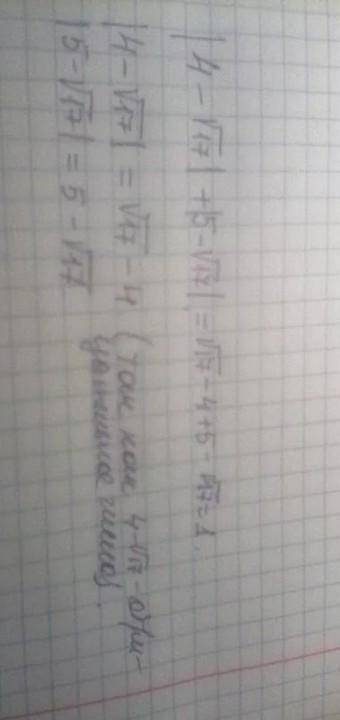 |4 - √17| + |5 - √17| = √17 - 4 + 5 - √17 = 1.
|4 - √17| = √17 - 4 (так как 4 - √17 - отри-
цательное число).
|5 - √17| = 5 - √17